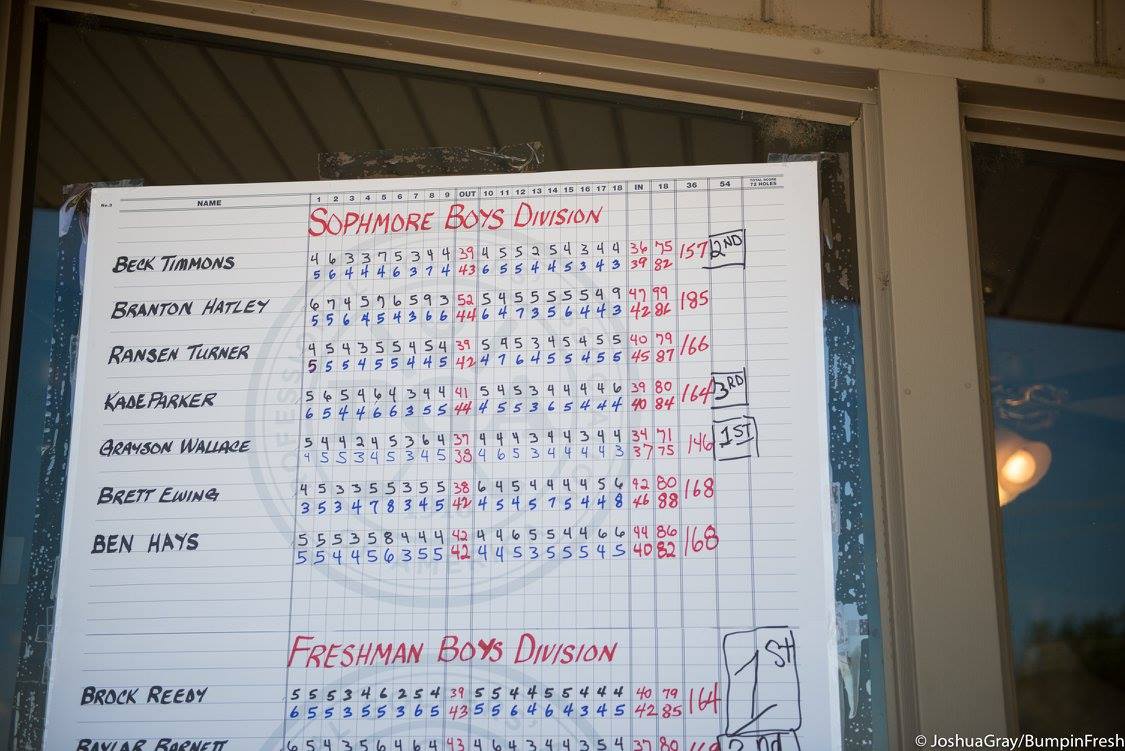 No.3 NAME 1 2 3 4 5 6 7 8 9 OUT 10 11 12 13 14 15 16 17 18 IN 18 36 54 TOTAL SCORE 72 HOLES
SOPHMORE BOYS DIVISION
BECK TIMMONS 4 6 3 3 7 5 3 4 4 39 4 5 5 2 5 4 3 4 4 36 75 157 2ND
5 6 4 4 4 6 3 7 4 43 6 5 5 4 4 5 3 4 3 39 82
BRANTON HATLEY 6 7 4 5 7 6 5 9 3 52 5 4 5 5 5 5 5 4 9 47 99 185
5 5 6 4 5 4 3 6 6 44 6 4 7 3 5 6 4 4 3 42 86
RANSEN TURNER 4 5 4 3 5 5 4 5 4 39 5 4 5 3 5 4 5 4 5 5 40 79 166
5 5 5 4 5 5 4 4 5 42 4 7 6 4 5 5 4 5 5 45 87
KADE PARKER 5 6 5 4 6 4 3 4 4 41 5 4 5 3 4 4 4 4 6 39 80 164 3RD
6 5 4 4 6 6 3 5 5 44 4 5 5 3 6 5 4 4 4 40 84
GRAYSON WALLACE 5 4 4 2 4 5 3 6 4 37 4 4 4 3 4 4 3 4 4 34 71 146 1ST
4 5 5 3 4 5 3 4 5 38 4 6 5 3 4 4 4 4 3 37 75
BRETT EWING 4 5 3 3 5 5 3 5 5 38 6 4 5 4 4 4 4 5 6 42 80 168
3 5 3 4 7 8 3 4 5 42 4 5 4 5 7 5 4 4 8 46 88
BEN HAYS 5 5 5 3 5 8 4 4 4 42 4 4 6 5 5 4 4 6 6 44 86 168
5 5 4 4 5 6 3 5 5 42 4 4 5 3 5 5 5 4 5 40 82
FRESHMAN BOYS DIVISION
BROCK REEDY 5 5 5 3 4 6 2 5 4 39 5 5 4 4 5 5 4 4 4 40 79 164 1St
6 5 5 3 5 5 3 6 5 43 5 5 6 4 6 4 3 4 5 42 85
BAYLAR BARNETT 6 5 4 3 5 6 4 6 4 43 4 6 4 3 4 4 3 5 4 37 80 2nd
© JoshuaGray/BumpinFresh